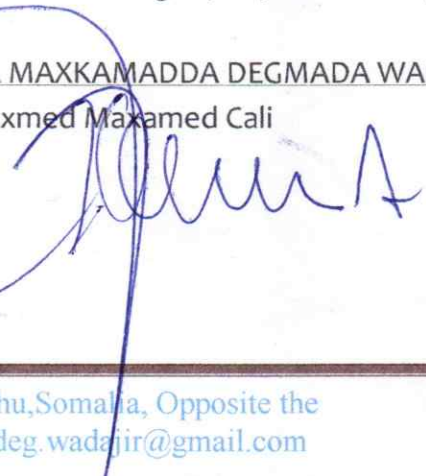 MAXKAMADDA DEGMADA WA
xmed Maxamed Cali
hu,Somalia, Opposite the
deg.wadajir@gmail.com